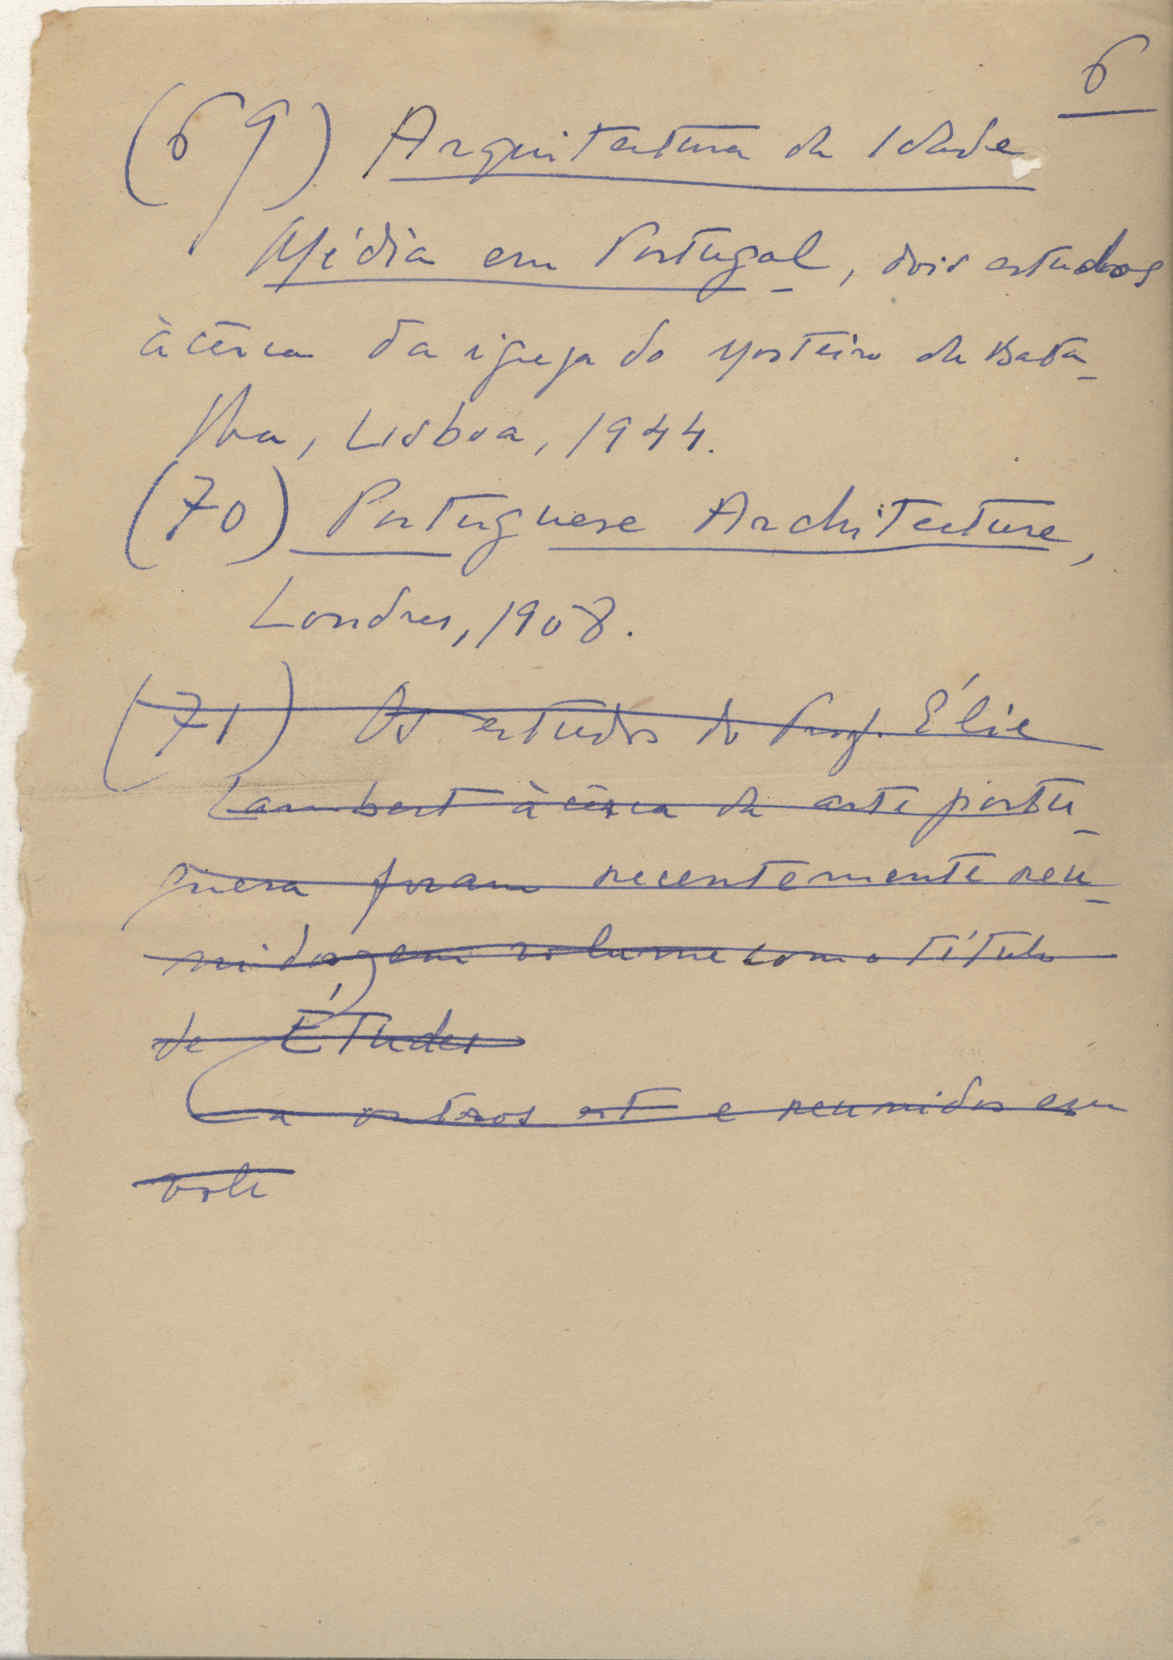 6
(69) Arquitectura da Idade
Média em Portugal, dois estudos
àcêrca da igreja do Mosteiro da Bata-
lha, Lisboa, 1944.
(70) Portuguese Architecture,
Londres, 1908.
(71) Os estudos do Prof. Élie
Lambert àcêrca da arte portu-
guesa foram recentemente reu-
nidos, em volume com o título
de Études
a outros est e reunidos em